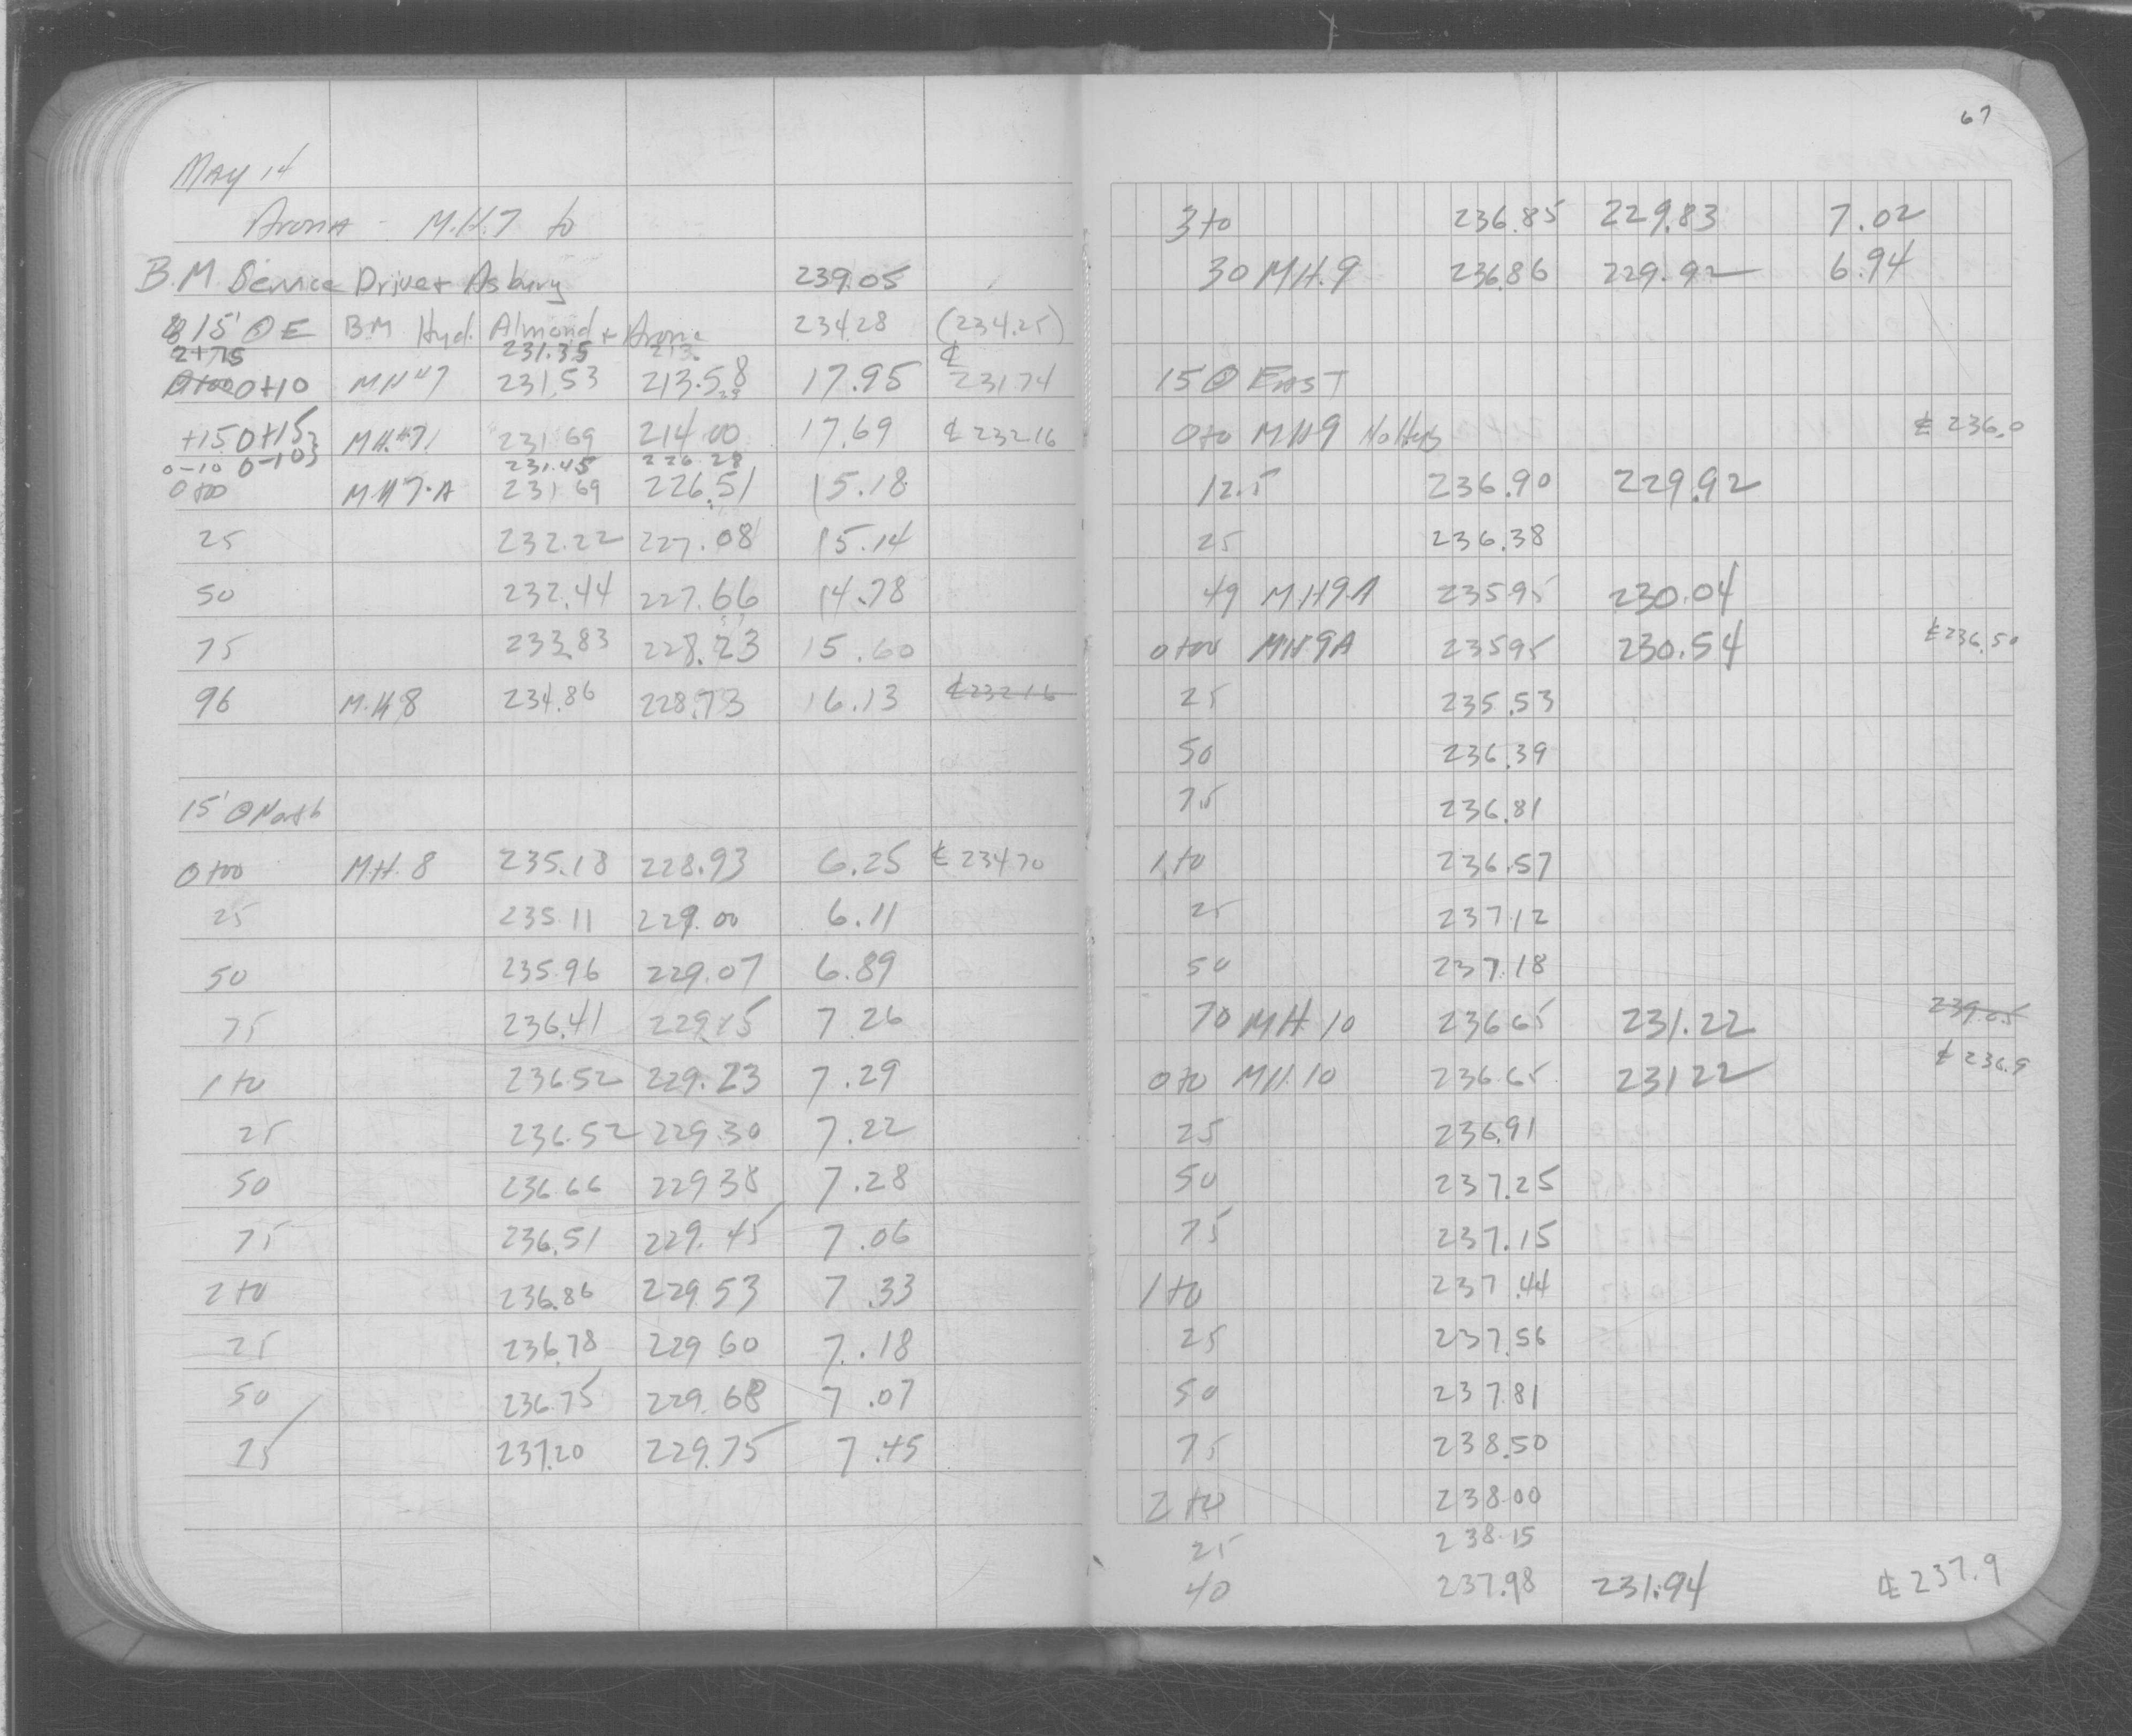 May 14
Arona - M.H.7 to
B.M. Service Drive + Asbury 239.05
15' ⊙ E BM Hyd. Almond + Arona 234.28 (234.25)
2+75 231.35 213. ℄
0+00 0+10 MH#7 231.53 213.58 17.95 231.74
+15 0+15 MH.#7 231.69 214.00 17.69 ℄ 232.16
0-10 0-10 231.45 226.28
0+00 MH7-A 231.69 226.51 15.18
25 232.22 227.08 15.14
50 232.44 227.66 14.78
75 233.83 228.23 15.60
96 M.H8 234.86 228.73 16.13 ℄ 232.16
15' ⊙ North
0+00 M.H. 8 235.18 228.93 6.25 ℄ 234.70
25 235.11 229.00 6.11
50 235.96 229.07 6.89
75 236.41 229.15 7.26
1+0 236.52 229.23 7.29
25 236.52 229.30 7.22
50 236.66 229.38 7.28
75 236.51 229.45 7.06
2+0 236.86 229.53 7.33
25 236.78 229.60 7.18
50 236.75 229.68 7.07
75 237.20 229.75 7.45
67
3+0 236.85 229.83 7.02
30 MH.9 236.86 229.92 6.94
15 ⊙ EAST
0+0 MH9 No Hubs ℄ 236.0
12.5 236.90 229.92
25 236.38
49 MH9A 235.95 230.04
0+00 MH9A 235.95 230.54 ℄ 236.50
25 235.53
50 236.39
75 236.81
1+0 236.57
25 237.12
50 237.18
70 MH.10 236.65 231.22 239.05
0+0 MH.10 236.65 231.22 ℄ 236.9
25 236.91
50 237.25
75 237.15
1+0 237.44
25 237.56
50 237.81
75 238.50
2+0 238.00
25 238.15
40 237.98 231.94 ℄ 237.9